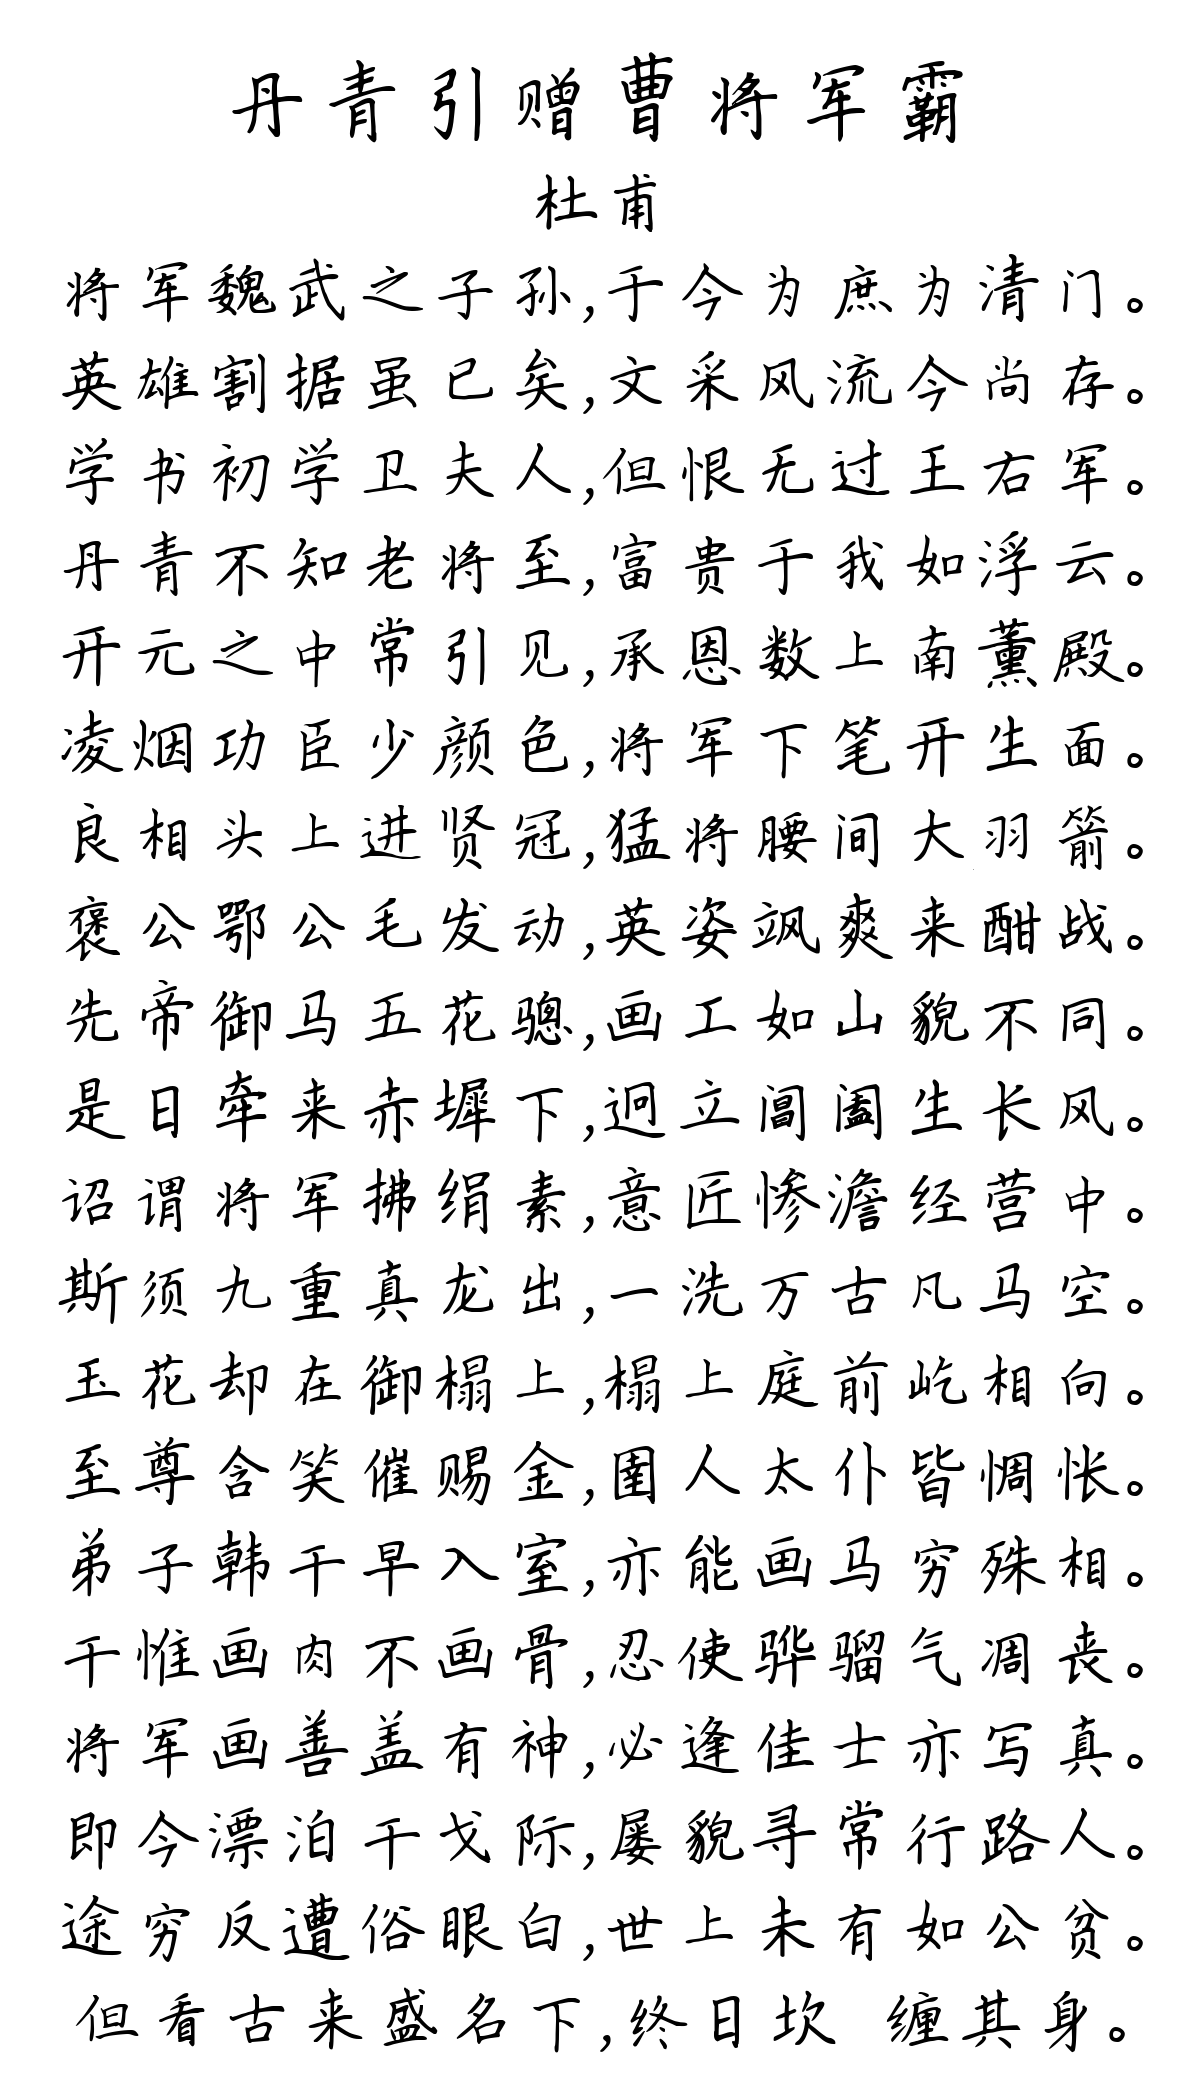 丹青引赠曹将军霸
杜甫
将军魏武之子孙,于今为庶为清门。
英雄割据虽已矣,文采风流今尚存。
学书初学卫夫人,但恨无过王右军。
丹青不知老将至,富贵于我如浮云。
开元之中常引见,承恩数上南薰殿。
凌烟功臣少颜色,将军下笔开生面。
良相头上进贤冠,猛将腰间大羽箭。
褒公鄂公毛发动,英姿飒爽来酣战。
先帝御马五花骢,画工如山貌不同。
是日牵来赤墀下,迥立阊阖生长风。
诏谓将军拂绢素,意匠惨澹经营中。
斯须九重真龙出,一洗万古凡马空。
玉花却在御榻上,榻上庭前屹相向。
至尊含笑催赐金,圉人太仆皆惆怅。
弟子韩干早入室,亦能画马穷殊相。
干惟画肉不画骨,忍使骅骝气凋丧。
将军画善盖有神,必逢佳士亦写真。
即今漂泊干戈际,屡貌寻常行路人。
途穷反遭俗眼白,世上未有如公贫。
但看古来盛名下,终日坎 缠其身。